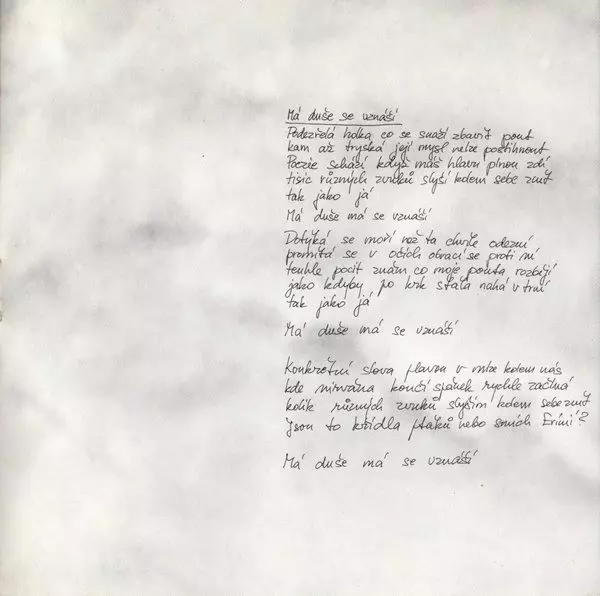 Má duše se vznáší
Podezřelá holka co se snaží zbavit pout
kam až tryská její mysl nelze postihnout
Poezie schází když máš hlavu plnou zdí
tisíc různých zvuků slyší kolem sebe znít
tak jako já
Má duše má se vznáší
Dotýká se moří než ta chvíle odezní
promítá se v očích obrací se proti ní
tenhle pocit znám co moje pouta rozbijí
jako kdyby po krk stála nahá v trní
tak jako já
Má duše má se vznáší
Konkrétní slova plavou v mlze kolem nás
kde nirvána končí spánek rychle začíná
kolik různých zvuků slyším kolem sebe znít
Jsou to křídla ptáků nebo smích Eriní?
Má duše má se vznáší